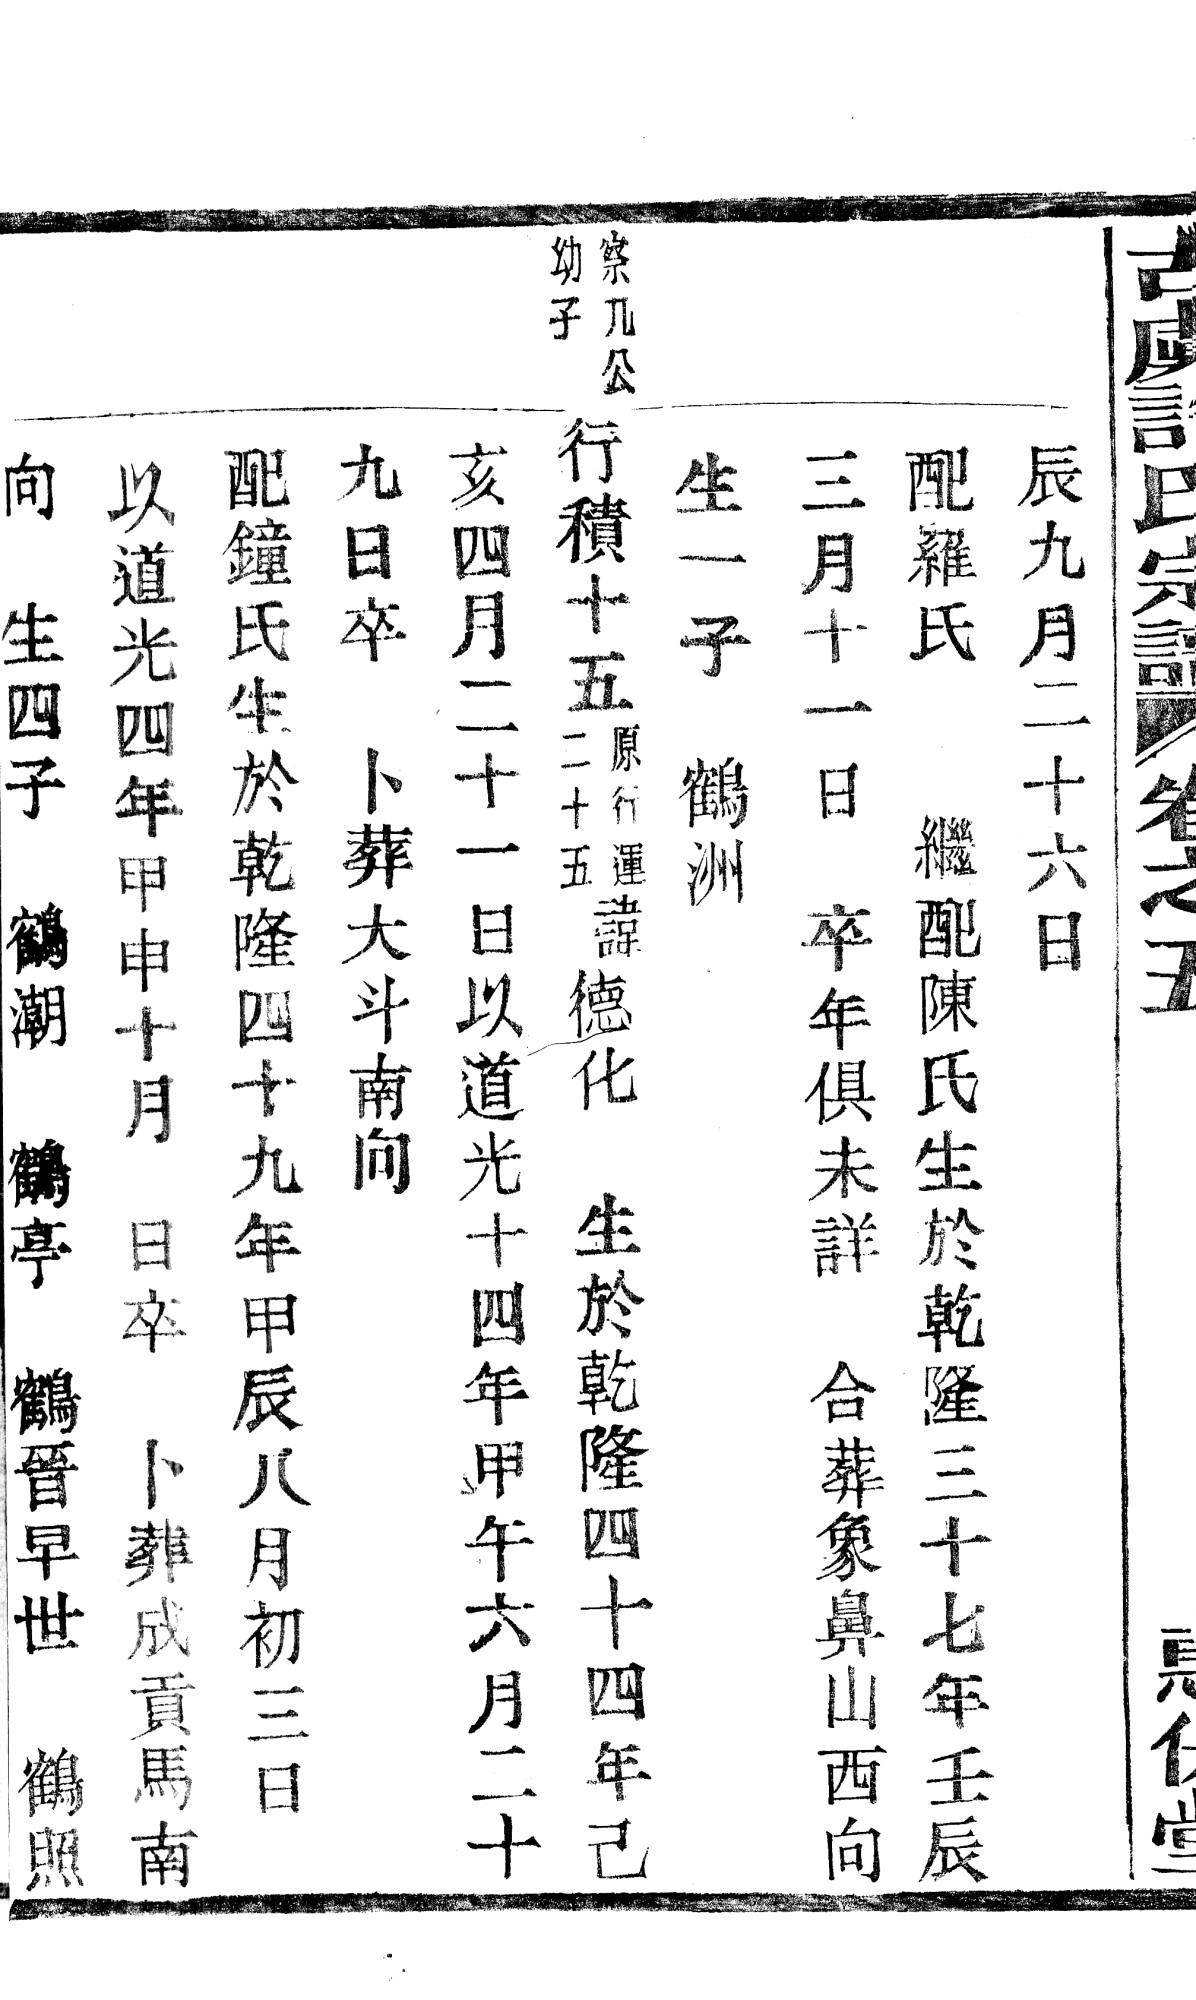 氏宗譜 卷之五
辰九月二十六日
配羅氏 繼配陳氏生於乾隆三十七年壬辰
三月十一日 卒年俱未詳 合葬象鼻山西向
生一子 鶴洲
察凡公
幼子
行積十五
原行運
二十五
諱德化 生於乾隆四十四年己
亥四月二十一日以道光十四年甲午六月二十
九日卒 卜葬大斗南向
配鐘氏生於乾隆四十九年甲辰八月初三日
以道光四年甲申十月 日卒 卜葬成貢馬南
向 生四子 鶴潮 鶴亭 鶴晉早世 鶴照